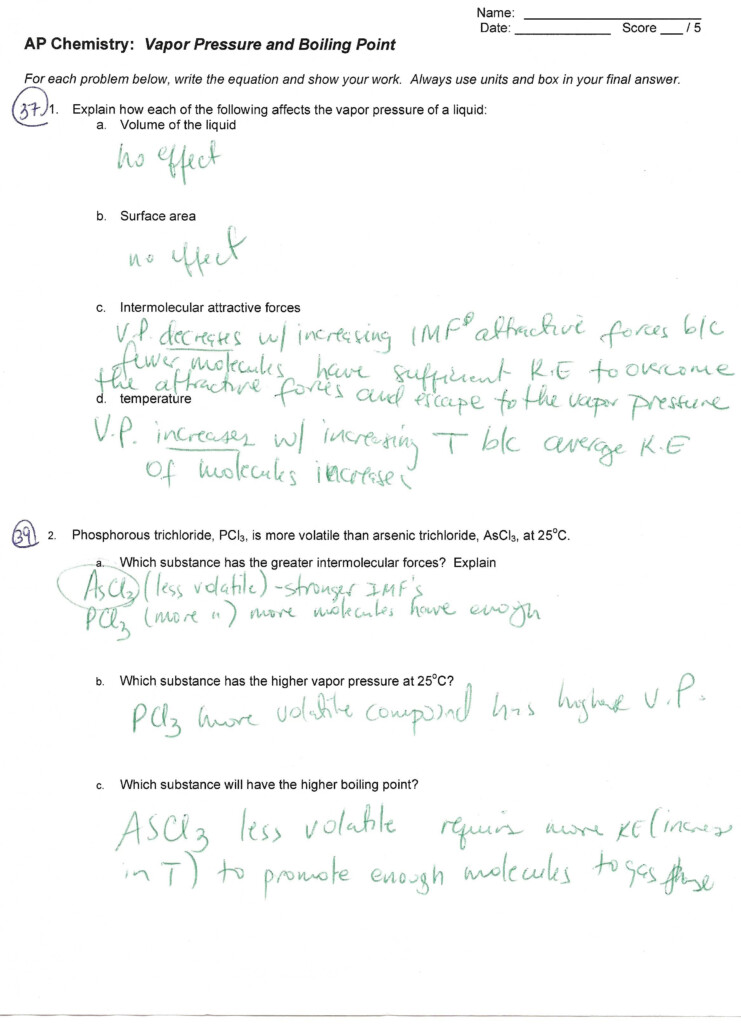 Name: ____________
Date: ____________ Score ___ / 5
AP Chemistry: Vapor Pressure and Boiling Point
For each problem below, write the equation and show your work. Always use units and box in your final answer.
37 1. Explain how each of the following affects the vapor pressure of a liquid:
a. Volume of the liquid
no effect
b. Surface area
no effect
c. Intermolecular attractive forces
V.P. decreases w/ increasing IMFs attractive forces b/c
fewer molecules have sufficient K.E to overcome
the attractive forces and escape to the vapor pressure
d. temperature
V.P. increases w/ increasing T b/c average K.E
of molecules increases
39 2. Phosphorous trichloride, PCl₃, is more volatile than arsenic trichloride, AsCl₃, at 25°C.
a. Which substance has the greater intermolecular forces? Explain
AsCl₃ (less volatile) - stronger IMF's
PCl₃ (more ") more molecules have enough
b. Which substance has the higher vapor pressure at 25°C?
PCl₃ more volatile compound has higher V.P.
c. Which substance will have the higher boiling point?
ASCl₃ less volatile requires more KE (increase
in T) to promote enough molecules to gas phase